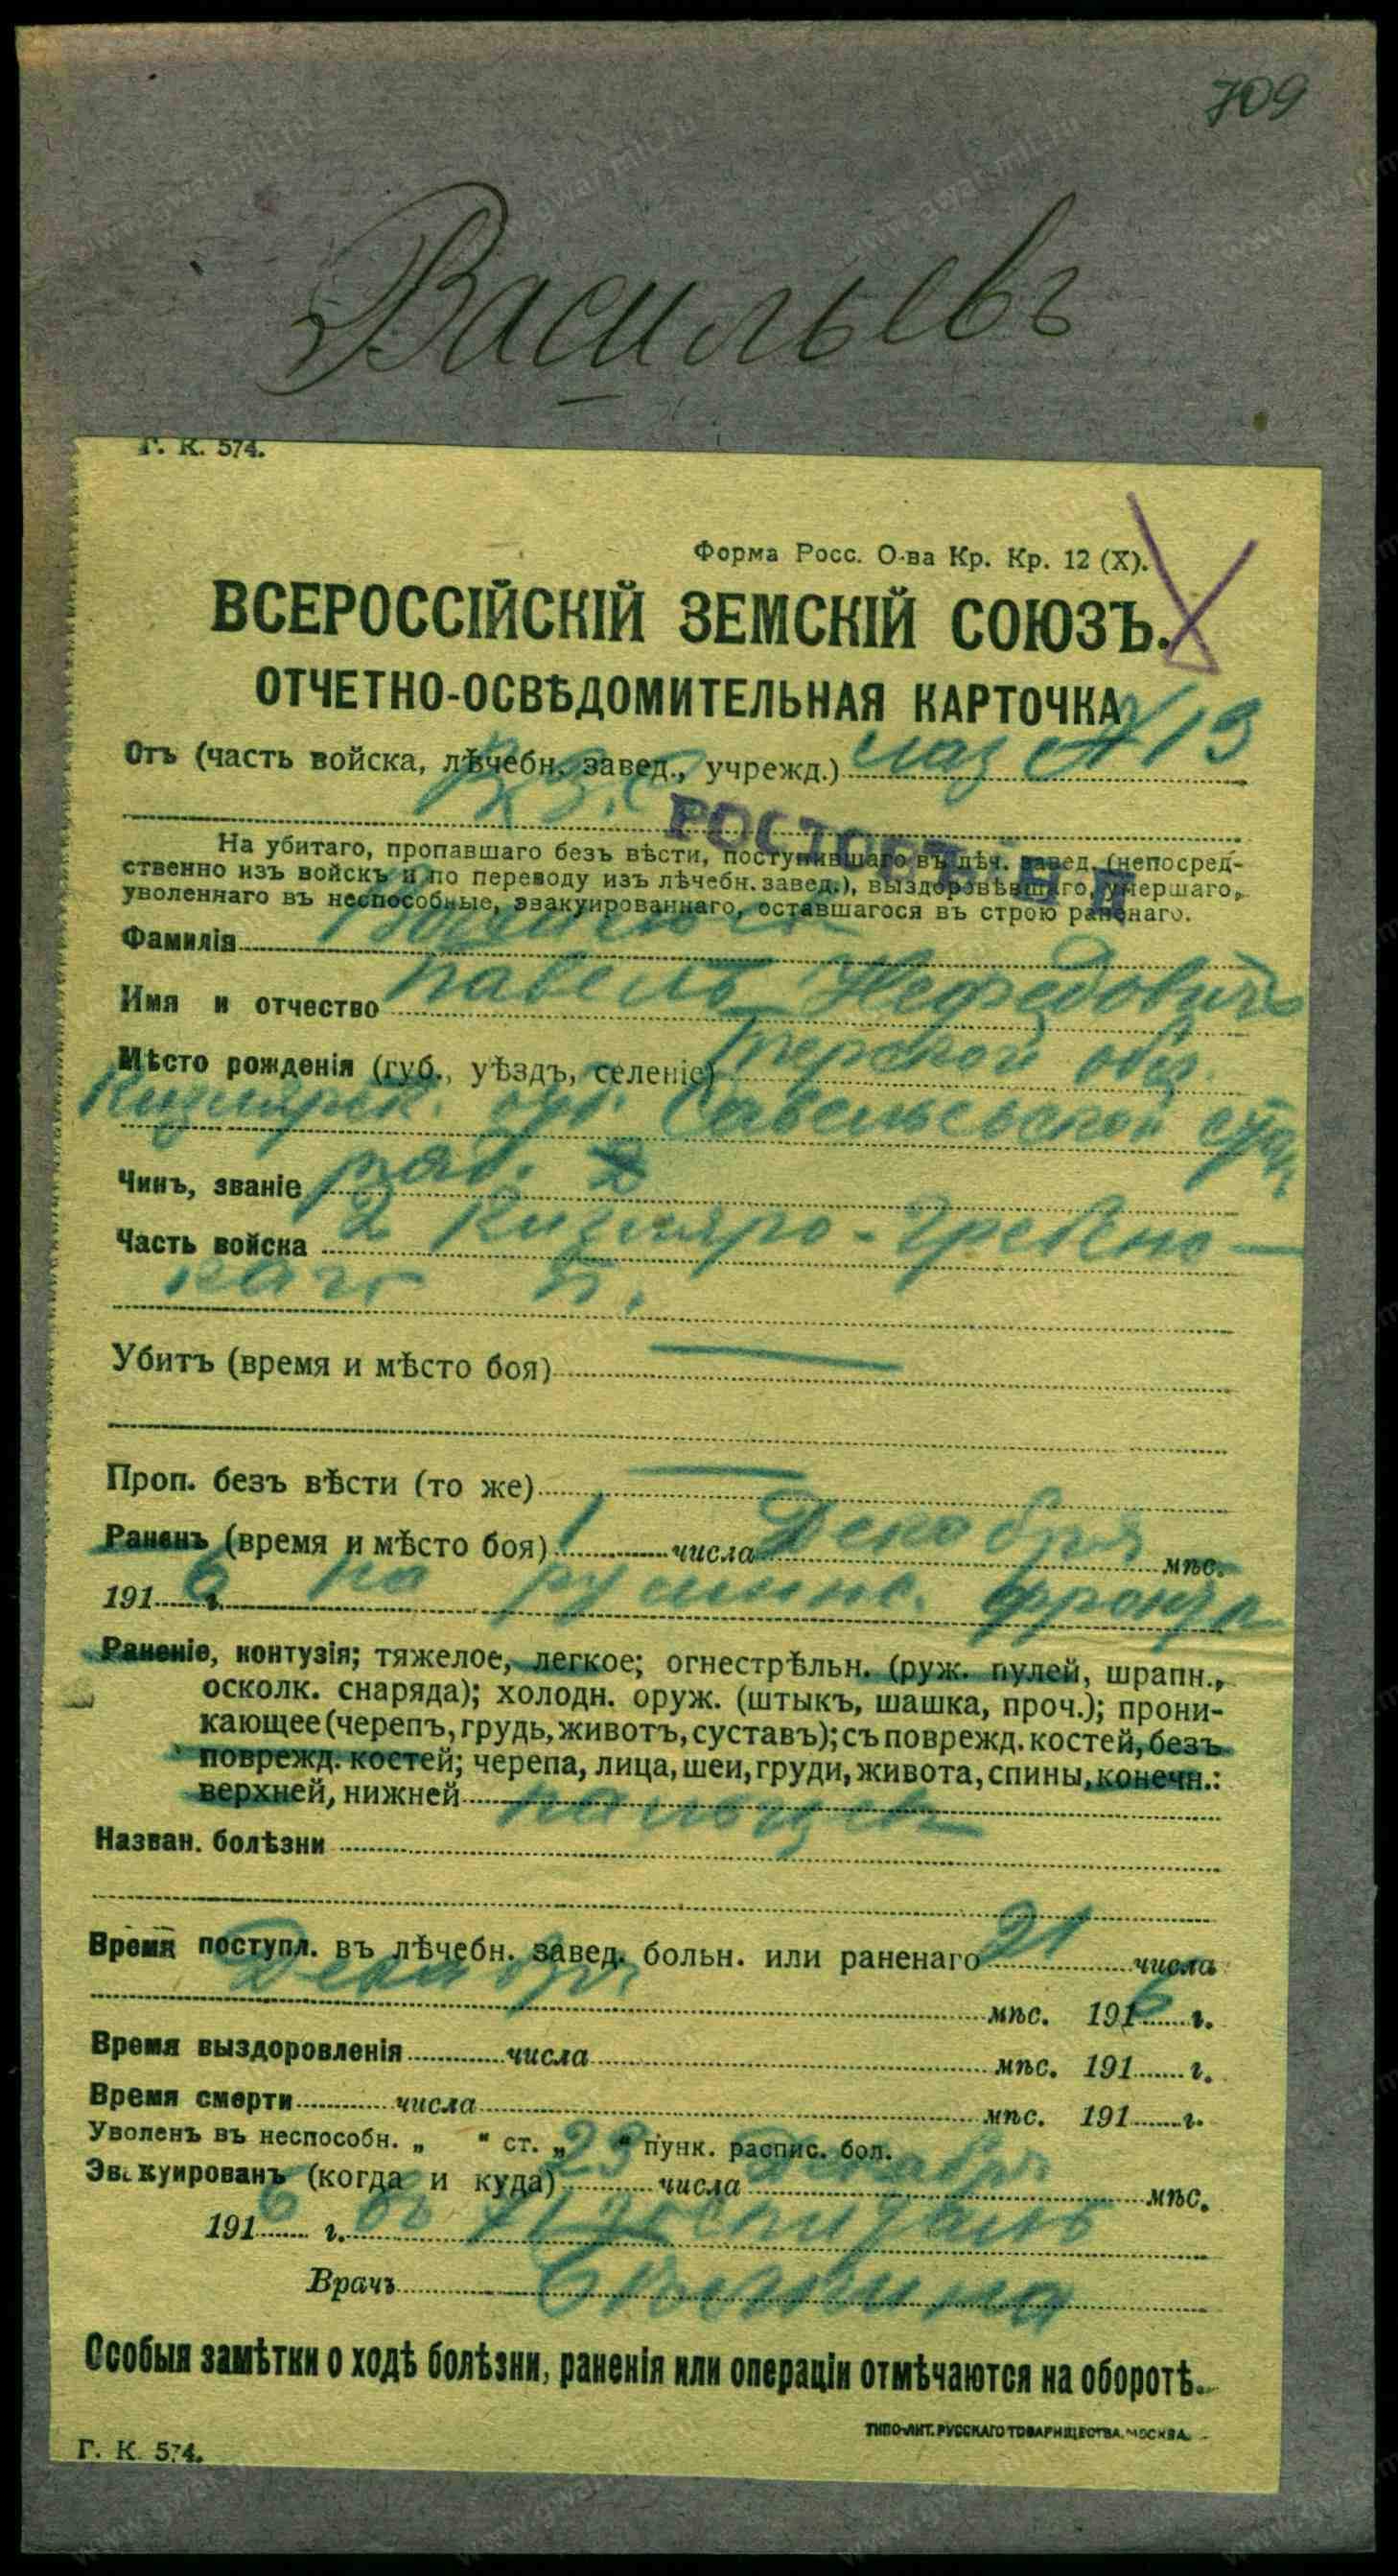 709
Васильевъ
Г. К. 574.
Форма Росс. О-ва Кр. Кр. 12 (X).
ВСЕРОССІЙСКІЙ ЗЕМСКІЙ СОЮЗЪ.
ОТЧЕТНО-ОСВѢДОМИТЕЛЬНАЯ КАРТОЧКА
Отъ (часть войска, лѣчебн. завед., учрежд.) лаз № 19
В.З.С.
РОСТОВЪ
На убитаго, пропавшаго безъ вѣсти, поступившаго въ лѣч. завед. (непосред-
ственно изъ войскъ и по переводу изъ лѣчебн. завед.), выздоровѣвшаго, умершаго,
уволеннаго въ неспособные, эвакуированнаго, оставшагося въ строю раненаго.
Фамилія Васильевъ
Имя и отчество Павелъ Нефедовичъ
Мѣсто рожденія (губ., уѣздъ, селеніе) Терской обл.
Кизлярск. отд. Савельевской стан.
Чинъ, званіе ряд.
Часть войска 2 Кизляро-Гребенс-
каго п.
Убитъ (время и мѣсто боя)
Проп. безъ вѣсти (то же)
Раненъ (время и мѣсто боя) 1 числа Декабря мѣс.
191 6 г. на румынс. фронтѣ
Раненіе, контузія; тяжелое, легкое; огнестрѣльн. (руж. пулей, шрапн.,
осколк. снаряда); холодн. оруж. (штыкъ, шашка, проч.); прони-
кающее (черепъ, грудь, животъ, суставъ); съ поврежд. костей, безъ
поврежд. костей; черепа, лица, шеи, груди, живота, спины, конечн.:
верхней, нижней пальцев
Назван. болѣзни
Время поступл. въ лѣчебн. завед. больн. или раненаго 21 числа
Декабря мѣс. 191 6 г.
Время выздоровленія числа мѣс. 191 г.
Время смерти числа мѣс. 191 г.
Уволенъ въ неспособн. „ “ ст. „ “ пунк. распис. бол.
Эвакуированъ (когда и куда) 23 числа Декабря мѣс.
191 6 г. въ госпиталь
Врачъ
Особыя замѣтки о ходѣ болѣзни, раненія или операціи отмѣчаются на оборотѣ.
ТИПО-ЛИТ. РУССКАГО ТОВАРИЩЕСТВА. МОСКВА.
Г. К. 574.